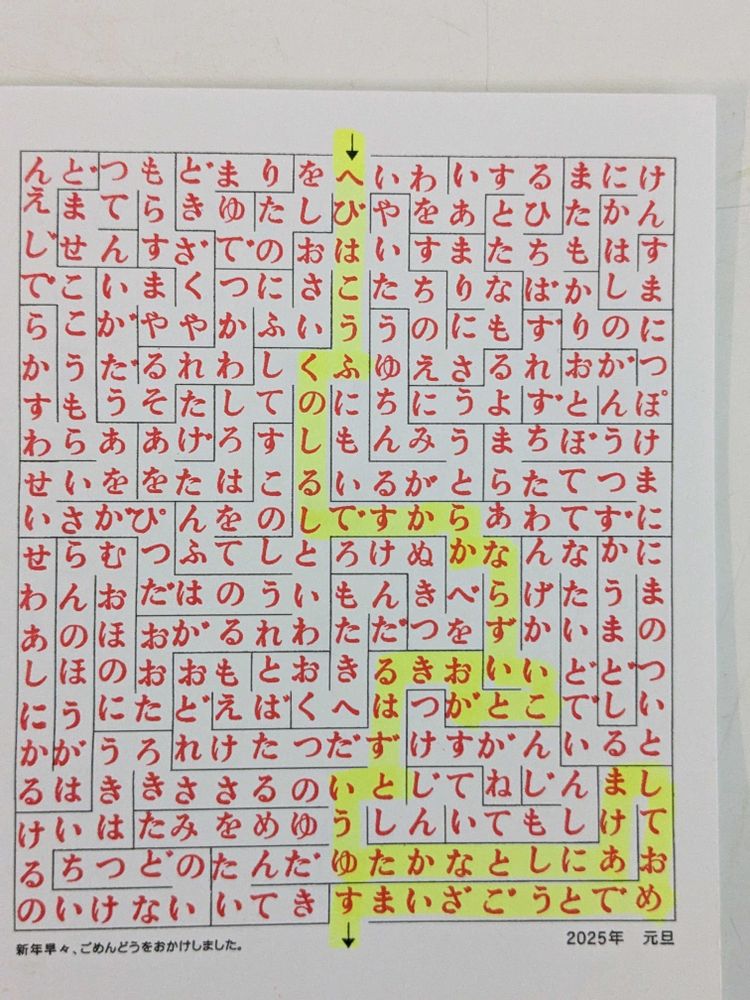 ↓
んどつもどまりをへいわいするまにけ
えまてらきゆたしびやをあとひたかん
じせんすざでのおはいすまたちもはす
でこいまくつにさこたちりなばかしま
らこがややかふいううのにもずりのに
かうだるれわしくふゆえさるれおがつ
すもうそたしてのにちにうよずとんぽ
わらああげろすしもんみうまちぼうけ
せいををたはこるいるがとらたてつま
いさかぴんをのしですからあわてずに
せらむつふてしとろけぬかなんなかに
わんおだはのういもんきべらげたうま
あのほおがるれわただつをずかいまの
しほのおおもとおきるきおいいどどつ
にうにたどえばくへはつがとこでしい
かがうろれけたつだずけすがんいると
るはききささるのいとじてねじんまし
けいはたみをめゆうしんいてもしけて
るちつどのたんだゆたかなとしにあお
のいけないいてきすまいざごうとでめ
↓
新年早々、ごめんどうをおかけしました。
2025年 元旦